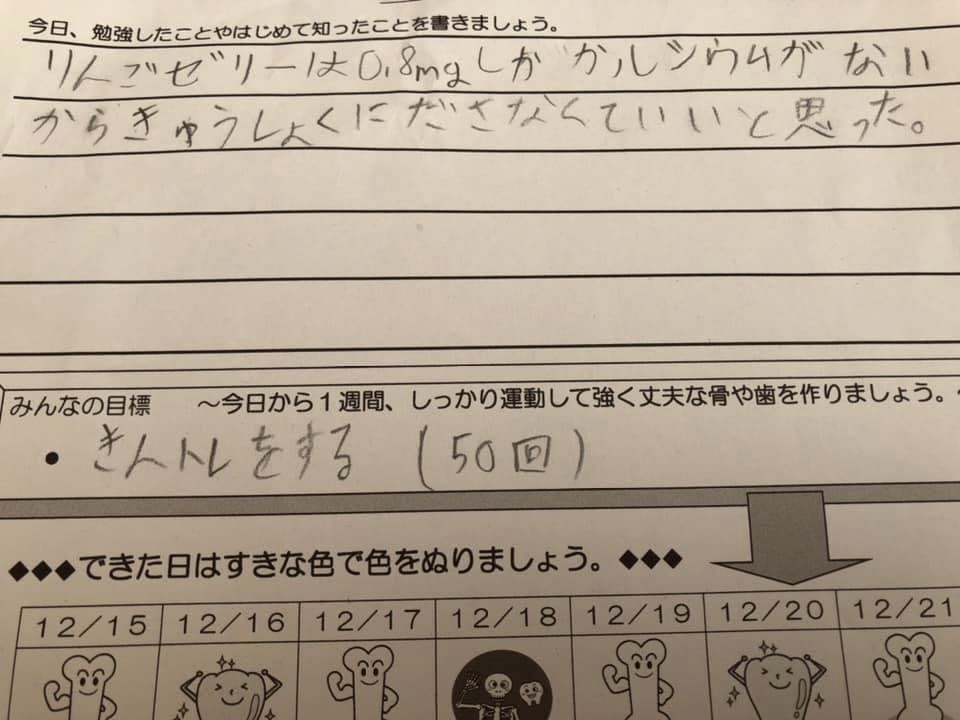 今日、勉強したことやはじめて知ったことを書きましょう。
りんごゼリーは0.8mgしかカルシウムがない
からきゅうしょくにださなくていいと思った。
みんなの目標　～今日から１週間、しっかり運動して強く丈夫な骨や歯を作りましょう。～
・きんトレをする（50回）
◆◆◆できた日はすきな色で色をぬりましょう。◆◆◆
12/15 12/16 12/17 12/18 12/19 12/20 12/21